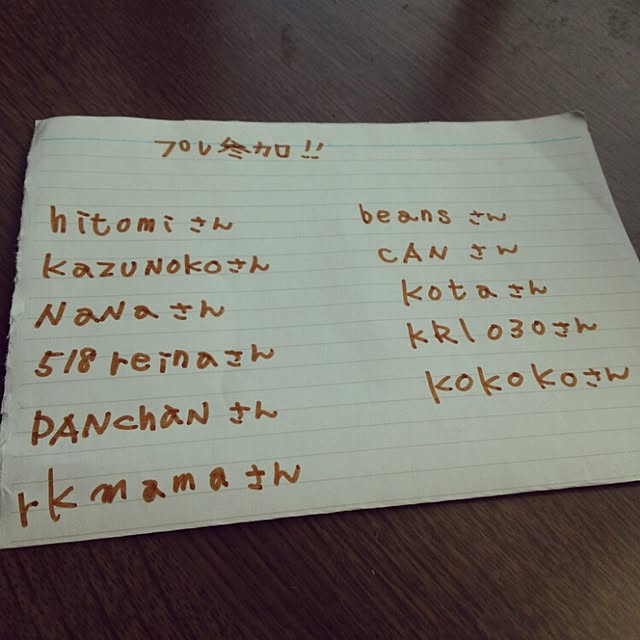 プレ参加!!
hitomiさん
KazuNoKoさん
NaNaさん
518reinaさん
DANchaNさん
rkmamaさん
beansさん
CANさん
kotaさん
KR1030さん
KoKoKoさん